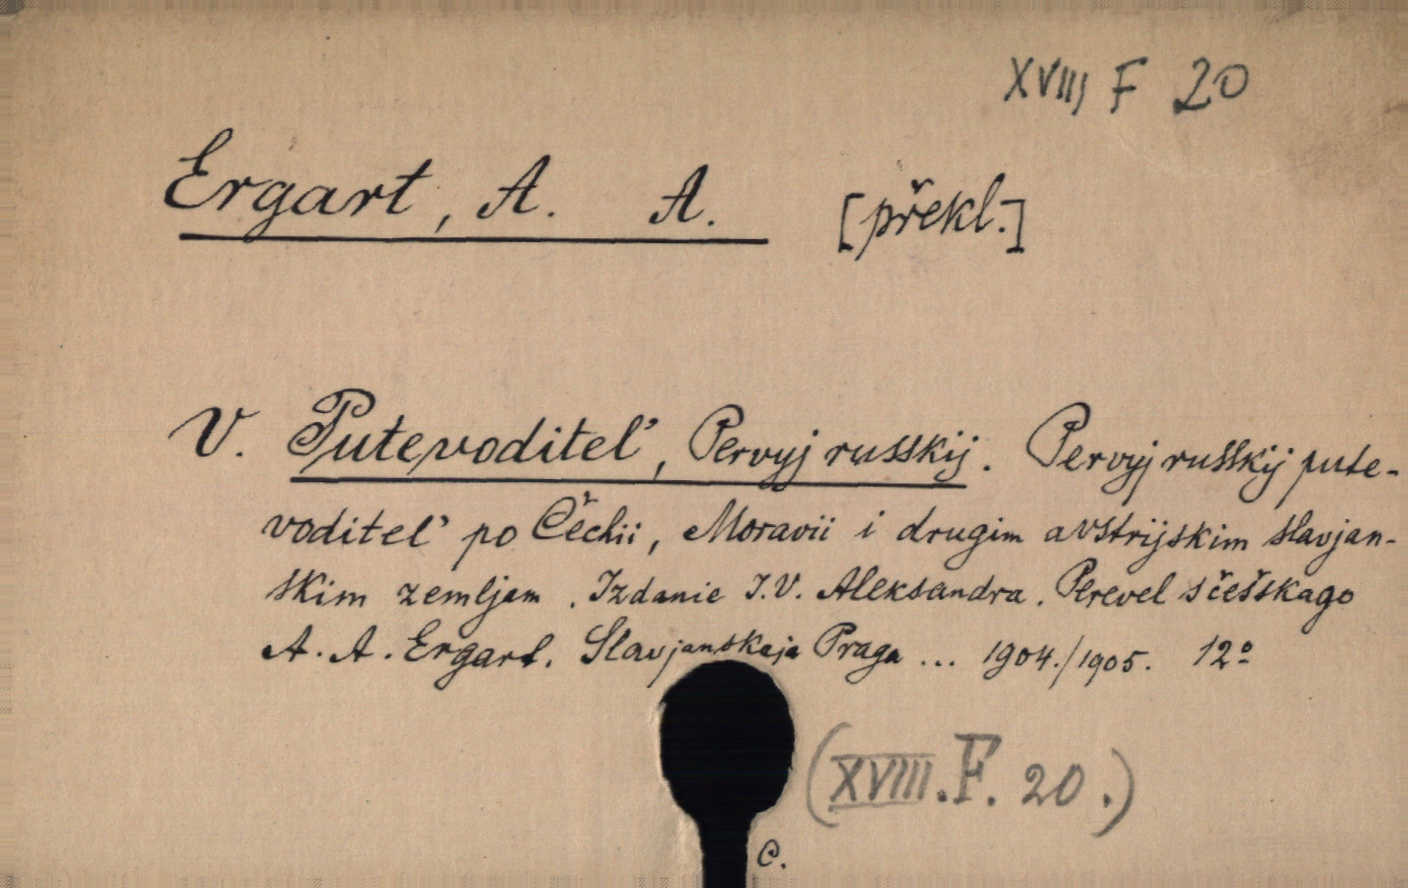 XVIII F 20
Ergart, A. A. [překl.]
V. Putevoditel', Pervyj russkij. Pervyj russkij pute-
voditel' po Čechii, Moravii i drugim avstrijskim slavjan-
skim zemljam. Izdanie I.V. Aleksandra. Perevel s češskago
A. A. Ergart. Slavjanskaja Praga ... 1904./1905. 12º
(XVIII. F. 20.)
C.